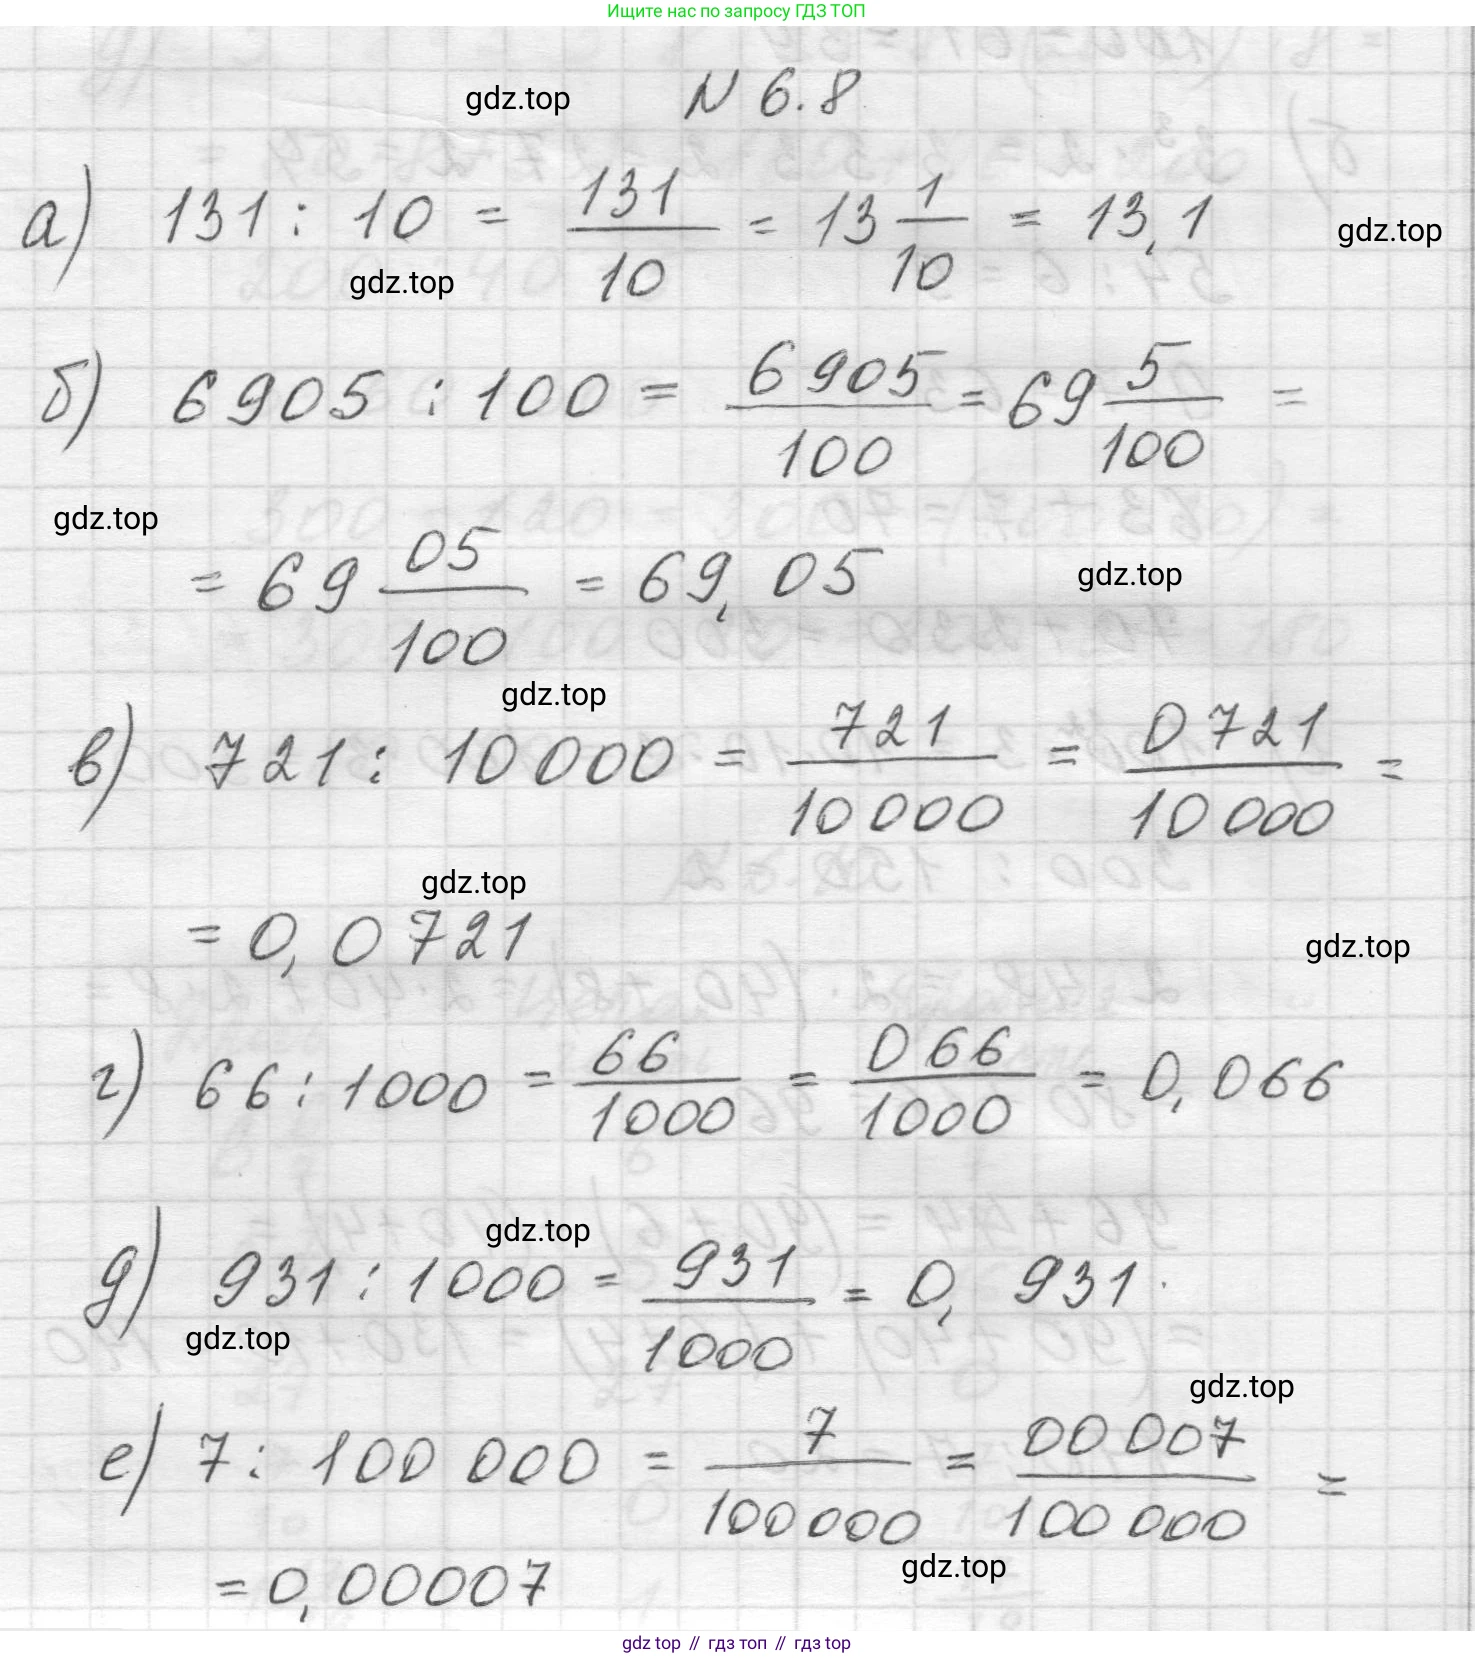 Ищите нас по запросу ГДЗ ТОП
gdz.top N 6.8
а) 131 : 10 = 131/10 = 13 1/10 = 13,1 gdz.top
gdz.top
б) 6905 : 100 = 6905/100 = 69 5/100 =
gdz.top
= 69 05/100 = 69,05 gdz.top
gdz.top
в) 721 : 10 000 = 721/10 000 = 0721/10 000 =
gdz.top
= 0,0721 gdz.top
г) 66 : 1000 = 66/1000 = 066/1000 = 0,066
gdz.top
д) 931 : 1000 = 931/1000 = 0,931
gdz.top
gdz.top
е) 7 : 100 000 = 7/100 000 = 00 007/100 000 =
gdz.top
= 0,00007
gdz top // гдз топ // гдз top